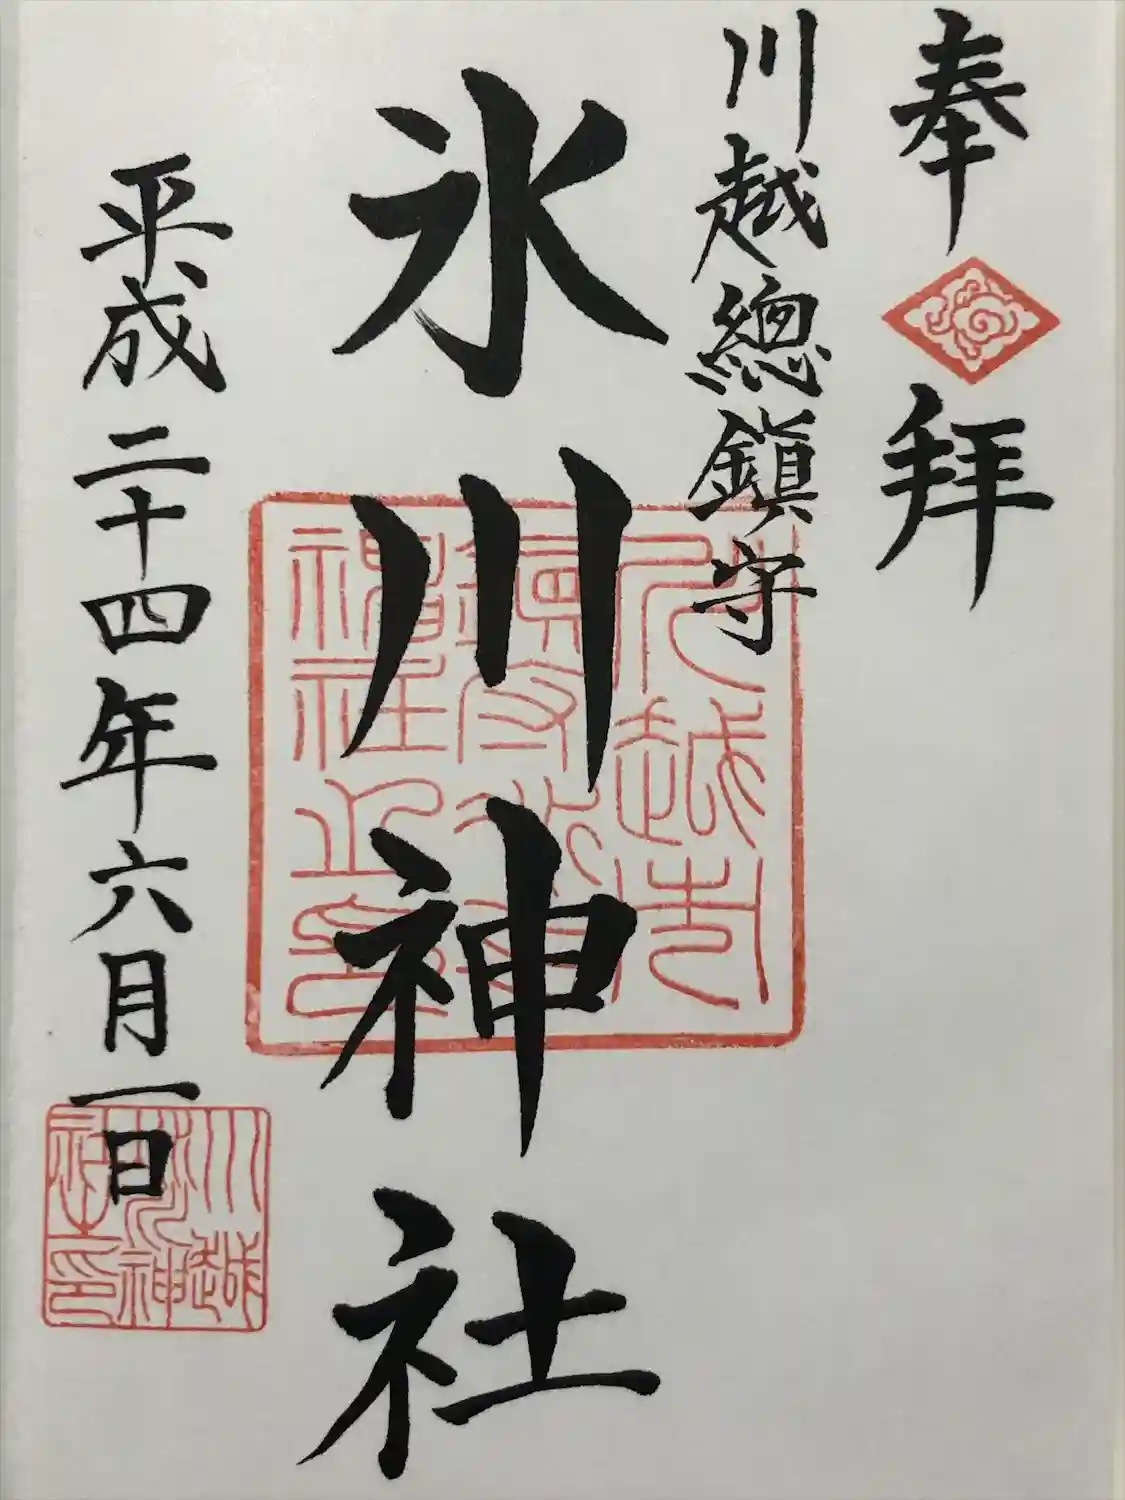 奉拝
川越總鎮守
氷川神社
平成二十四年六月一日
川越
氷川神
社之印